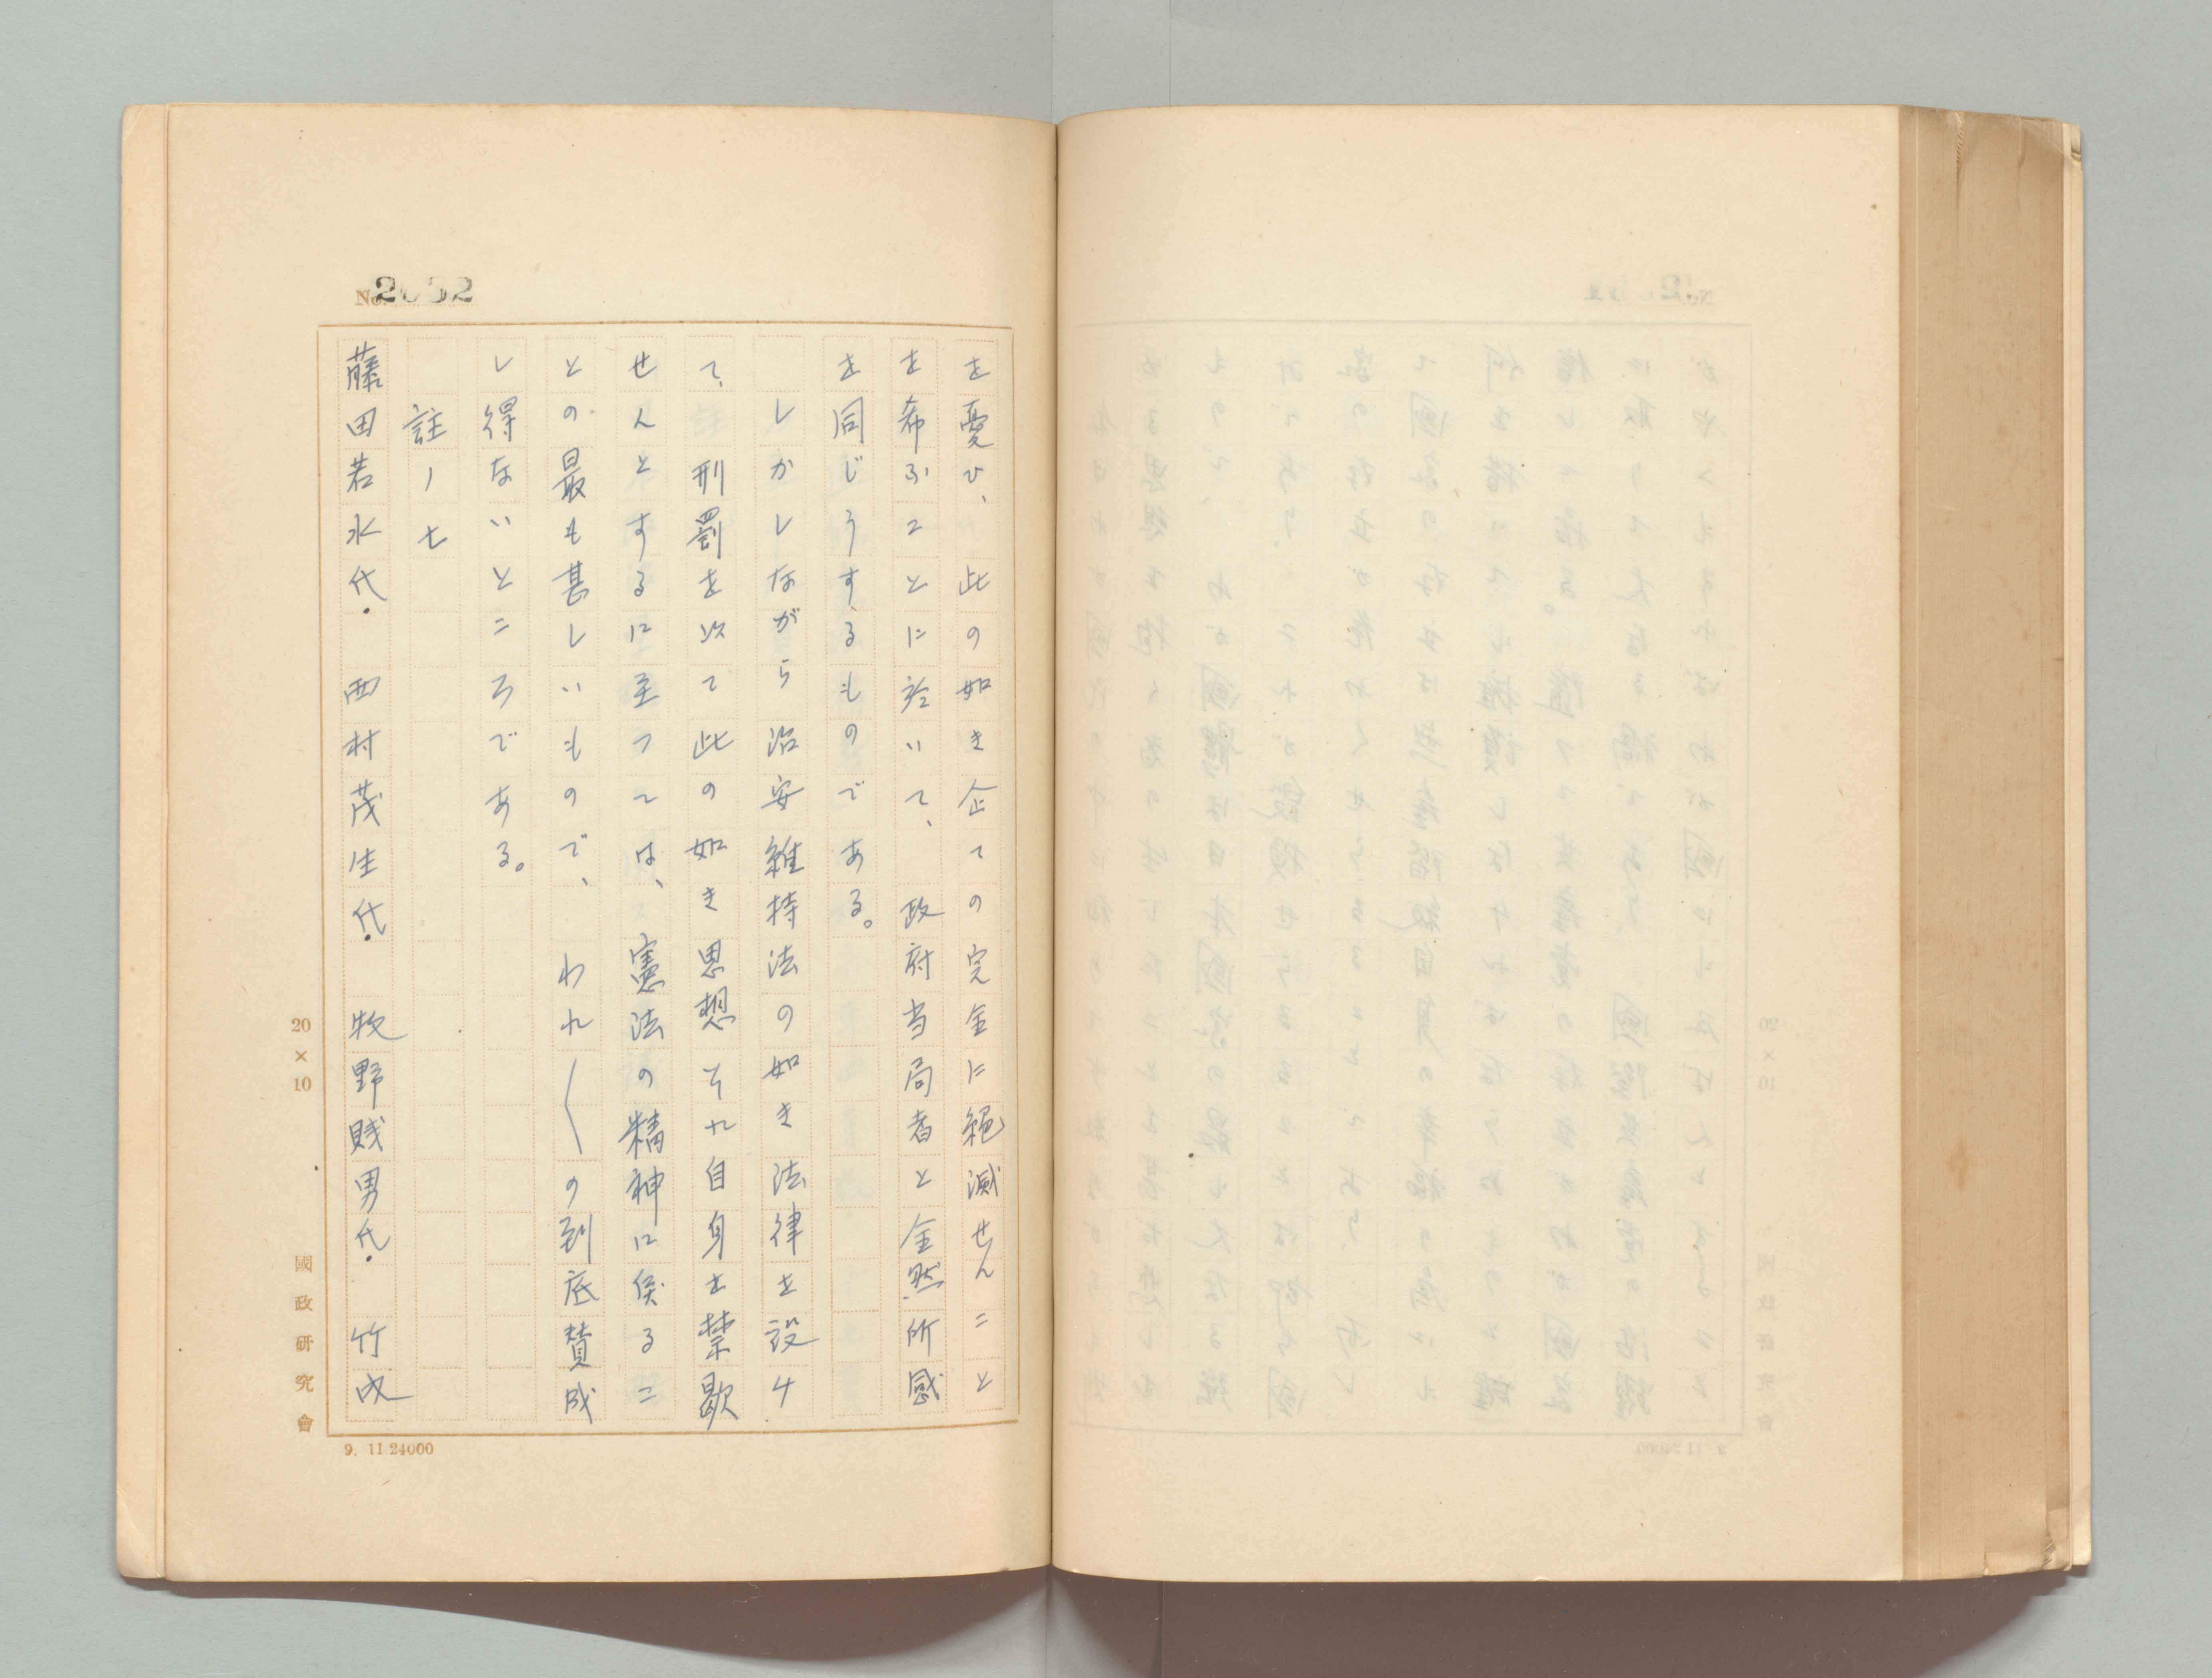 No. 2032
を憂ひ、此の如き企ての完全に絶滅せんこと
を希ふことに於いて、政府当局者と全然所感
を同じうするものである。
しかしながら治安維持法の如き法律を設け
て、刑罰を以て此の如き思想それ自身を禁歇
せんとするに至つては、憲法の精神に戻るこ
との最も甚しいもので、われ〱の到底賛成
し得ないところである。
註ノ七
藤田若水代・西村茂生代・牧野賤男代・竹内
20×10
國政研究會
9. 11.24000